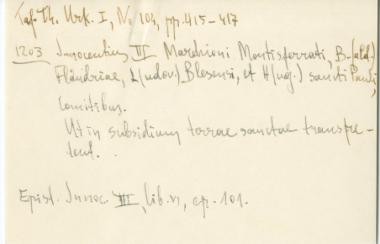 Taf. Th. Urk. I, No 104, pp. 415–417
1203 Innocentius III Marchioni Montisferrati, B-(ald.)
Flandriae, L(udov.) Blesensi, et H(ug.) sancti Pauli,
comitibus.
Ut in subsidium terrae sanctae transfre-
tent.
Epist. Innoc. III, lib. VI, ep. 101.